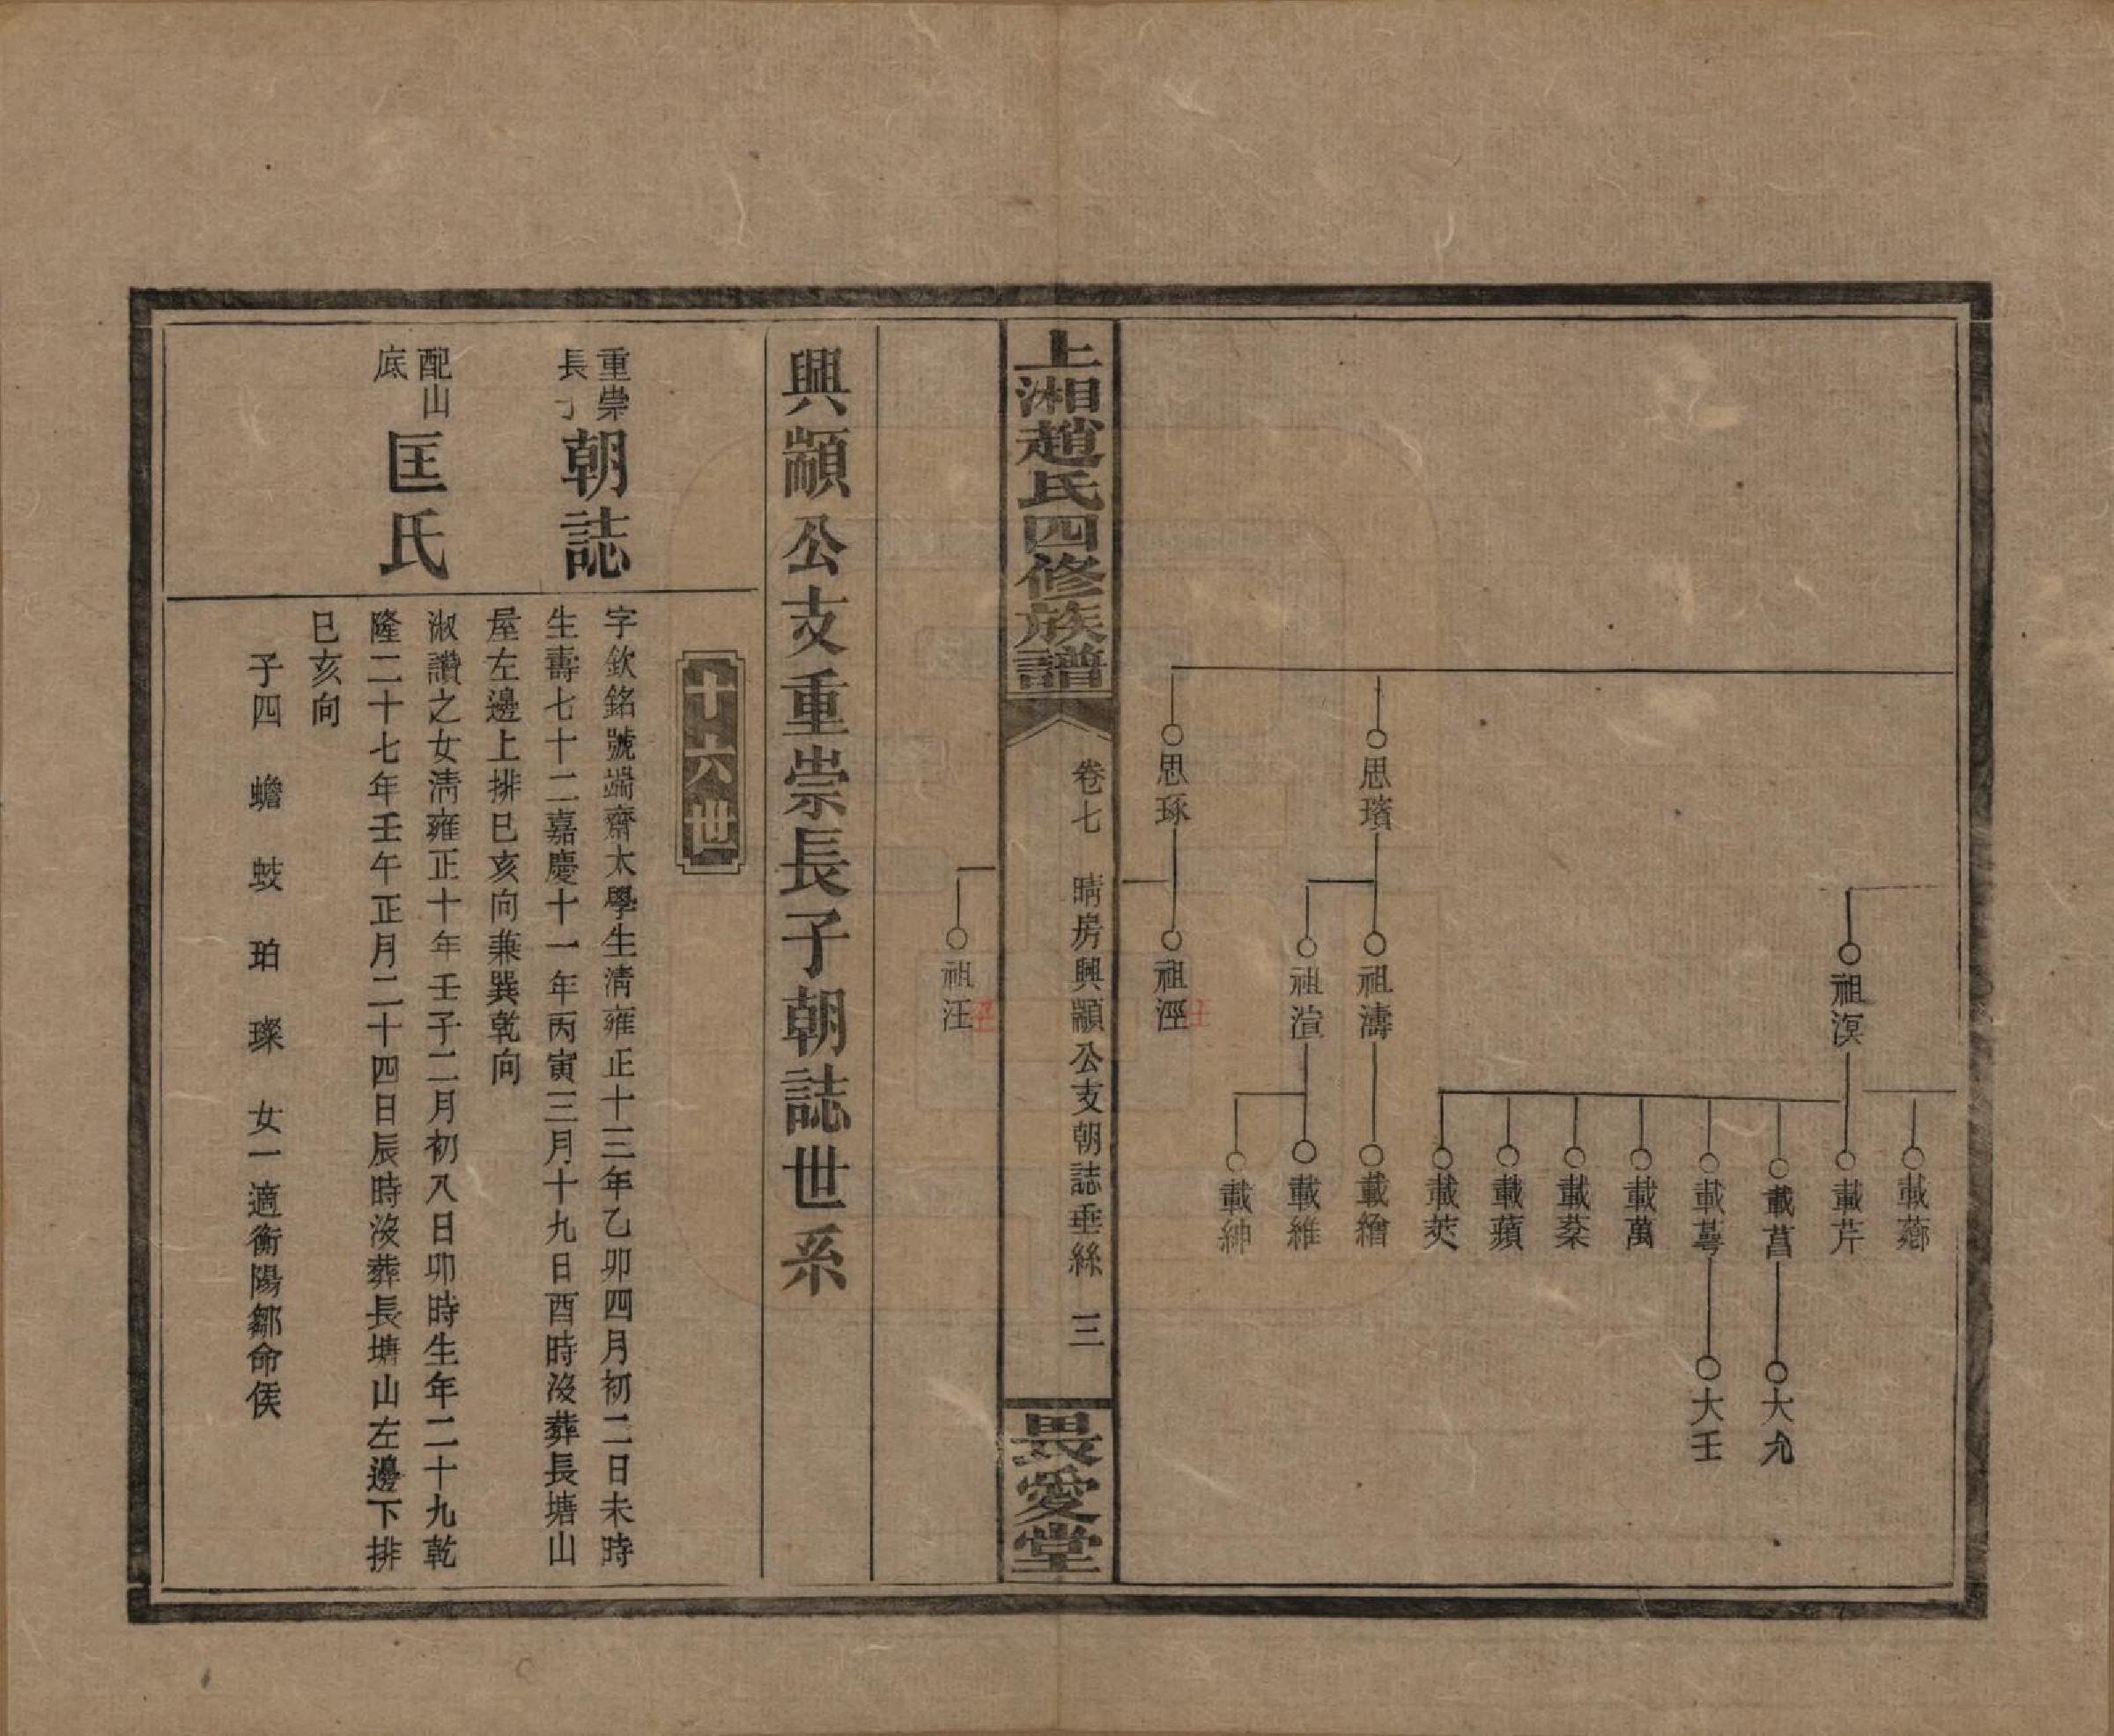 思璸
思琢
祖溟
祖濤
祖渲
祖溼
載薌
載芹
載菖
載萬
載蓁
載蘋
載莢
載繪
載維
載紳
大允
大壬
上湘趙氏四修族譜
卷七
晴房興顓公支朝誌垂絲
三
畏愛堂
祖汪
興顓公支重崇長子朝誌世系
十六世
重崇
長子
朝誌
字欽銘號端齋太學生清雍正十三年乙卯四月初二日未時
生壽七十二嘉慶十一年丙寅三月十九日酉時沒葬長塘山
屋左邊上排巳亥向兼巽乾向
配山
底
匡氏
淑讚之女清雍正十年壬子二月初八日卯時生年二十九乾
隆二十七年壬午正月二十四日辰時沒葬長塘山左邊下排
巳亥向
子四 蟾 蛟 珀 璨 女一適衡陽鄒命侯